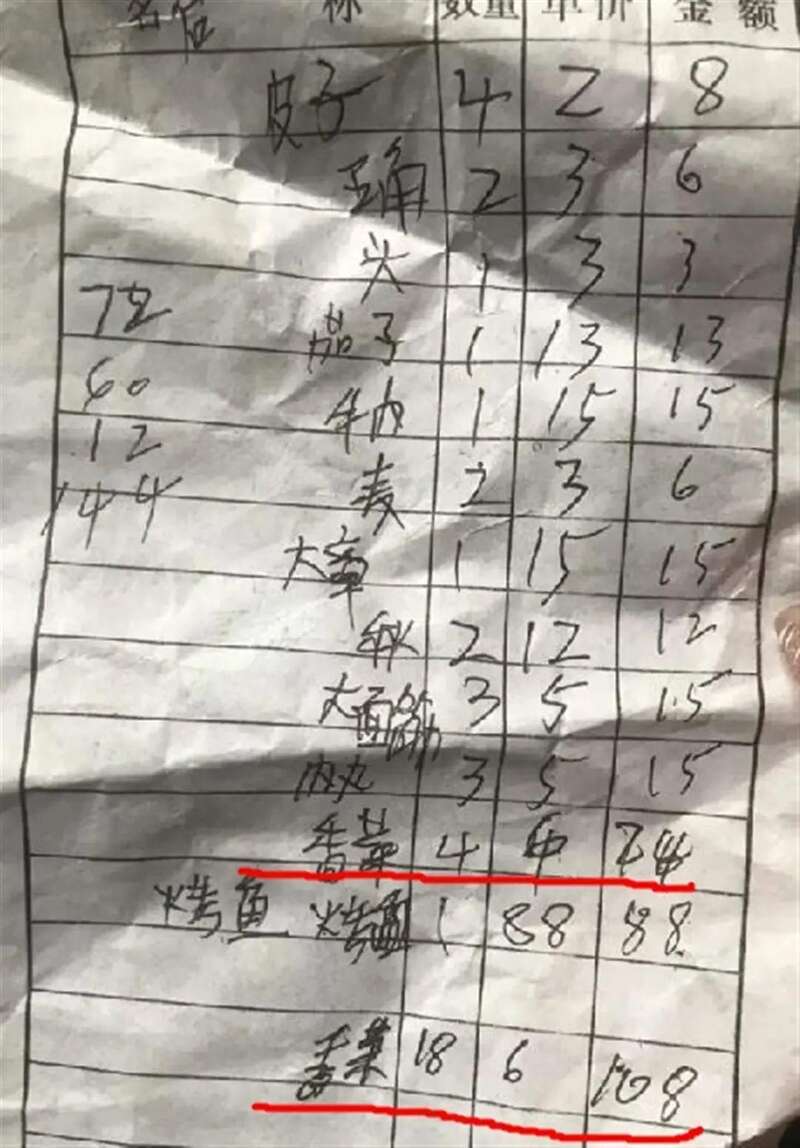 名 称 数量 单价 金额
皮子 4 2 8
玉角 2 3 6
头 1 3 3
72 茄子 1 13 13
60 牛肉 1 15 15
12
144 麦 2 3 6
大章 1 15 15
秋 2 12 12
大面筋 3 5 15
肉丸 3 5 15
香菜 4 6 24
烤鱼 烤鱼 1 88 88
香菜 18 6 108